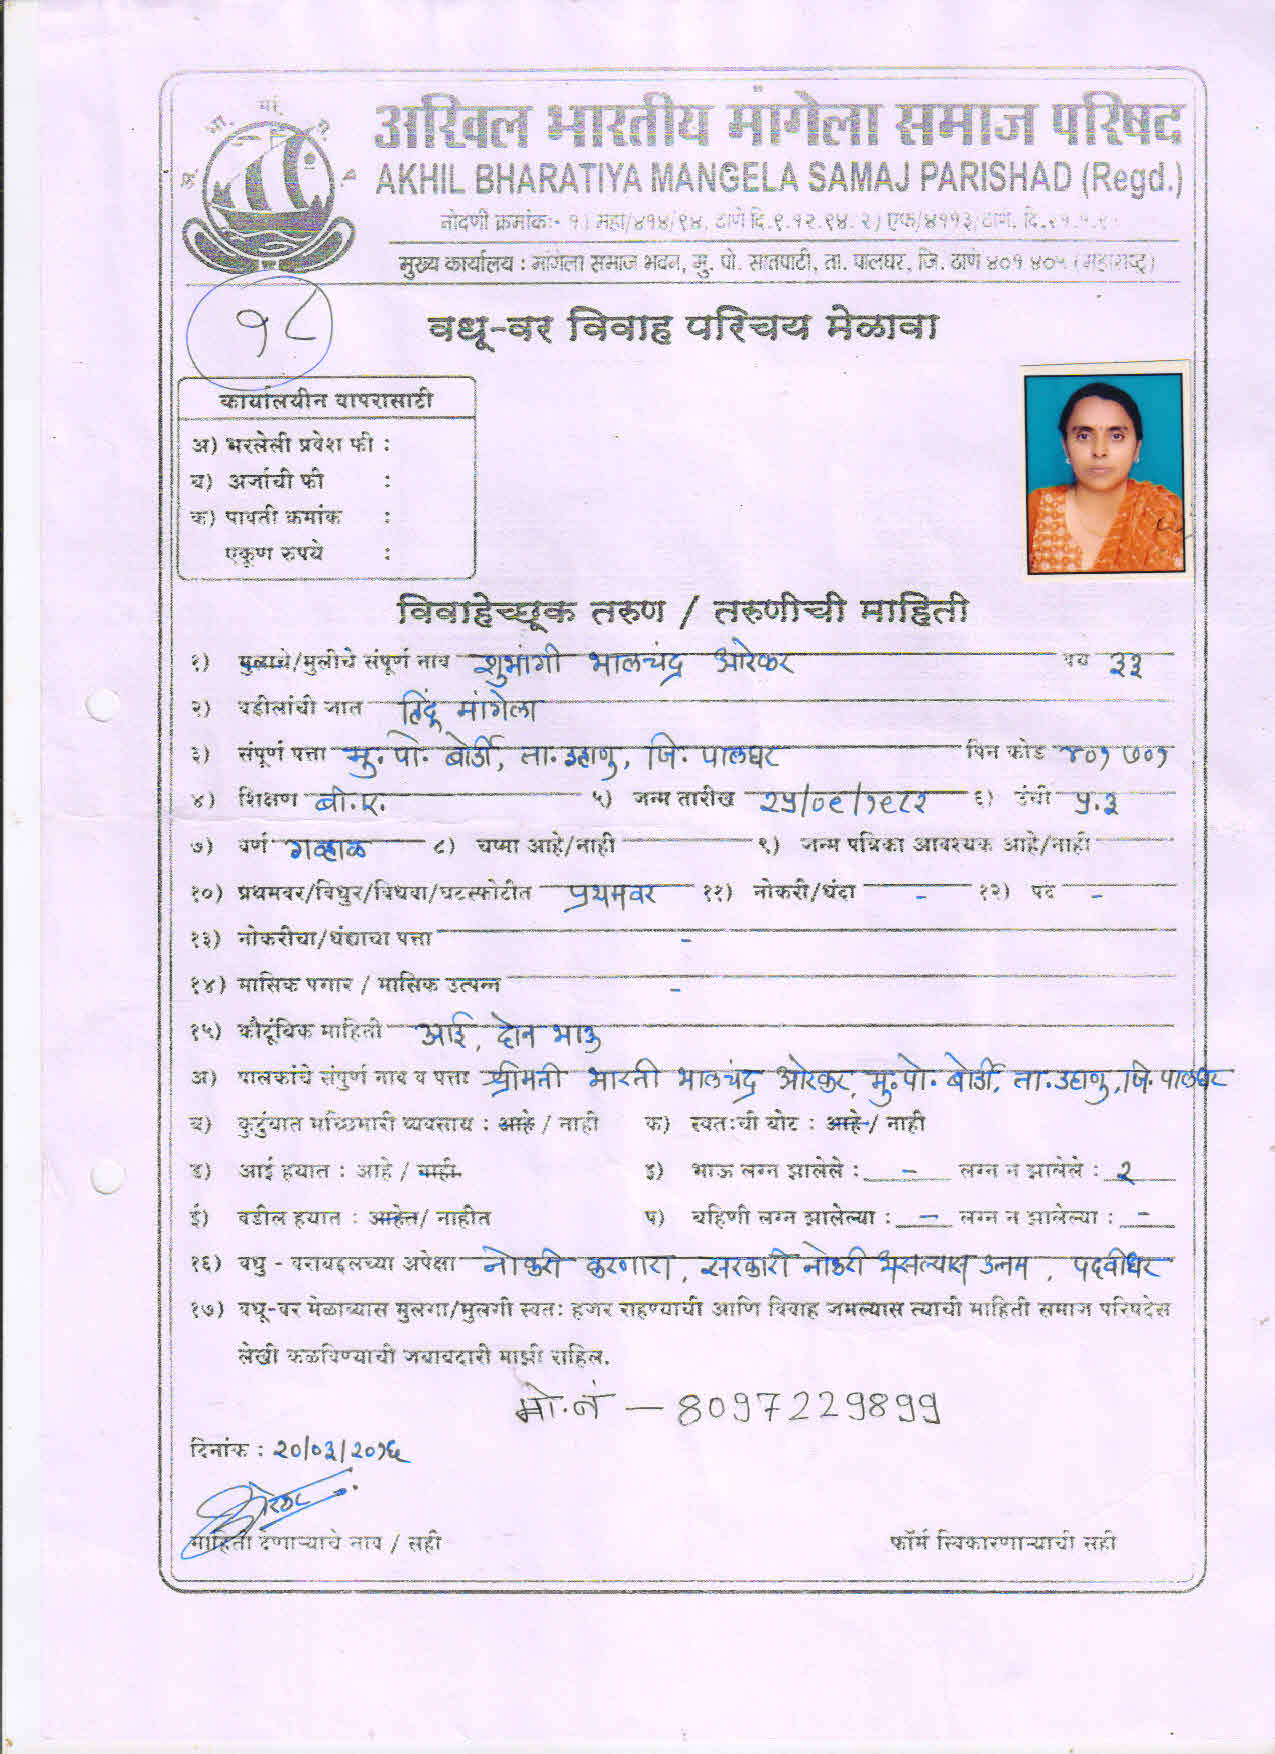 अखिल भारतीय मांगेला समाज परिषद
AKHIL BHARATIYA MANGELA SAMAJ PARISHAD (Regd.)
नोंदणी क्रमांक:- १) महा/४१४/९४, ठाणे दि.९.१२.९४. २) एफ/४११३/ठाणे. दि.
मुख्य कार्यालय : मांगेला समाज भवन, मु. पो. सातपाटी, ता. पालघर, जि. ठाणे ४०१ ४०५ (महाराष्ट्र)
१८
वधू-वर विवाह परिचय मेळावा
कार्यालयीन वापरासाटी
अ) भरलेली प्रवेश फी :
ब) अर्जाची फी :
क) पावती क्रमांक :
एकूण रुपये :
विवाहेच्छूक तरुण / तरुणीची माहिती
१) मुलाचे/मुलीचे संपूर्ण नाव शुभांगी भालचंद्र आरेकर वय ३३
२) वडीलांची जात हिंदू मांगेला
३) संपूर्ण पत्ता मु. पो. बोर्डी, ता. डहाणु, जि. पालघर पिन कोड ४०१ ७०१
४) शिक्षण बी.ए. ५) जन्म तारीख २५/०९/१९८२ ६) उंची ५.३
७) वर्ण गव्हाळ ८) चष्मा आहे/नाही ९) जन्म पत्रिका आवश्यक आहे/नाही
१०) प्रथमवर/विधुर/विधवा/घटस्फोटीत प्रथमवर ११) नोकरी/धंदा - १२) पद -
१३) नोकरीचा/धंद्याचा पत्ता -
१४) मासिक पगार / मासिक उत्पन्न -
१५) कौटूंबिक माहिती आई, दोन भाऊ
अ) पालकांचे संपुर्ण नाव व पत्ता श्रीमती भारती भालचंद्र आरेकर, मु. पो. बोर्डी, ता. डहाणु, जि. पालघर
ब) कुटुंबात मच्छिमारी व्यवसाय : आहे / नाही क) स्वतःची बोट : आहे / नाही
ड) आई हयात : आहे / नाही इ) भाऊ लग्न झालेले : - लग्न न झालेले : २
ई) वडील हयात : आहेत/ नाहीत प) बहिणी लग्न झालेल्या : - लग्न न झालेल्या : -
१६) वधु - वराबद्दलच्या अपेक्षा नोकरी करणारा, सरकारी नोकरी असल्यास उत्तम, पदवीधर
१७) वधू-वर मेळाव्यास मुलगा/मुलगी स्वतः हजर राहण्याची आणि विवाह जमल्यास त्याची माहिती समाज परिषदेस
लेखी कळविण्याची जबाबदारी माझी राहिल.
मो. नं - 8097229899
दिनांक : २०/०३/२०१६
माहिती देणाऱ्याचे नाव / सही फॉर्म स्विकारणाऱ्याची सही